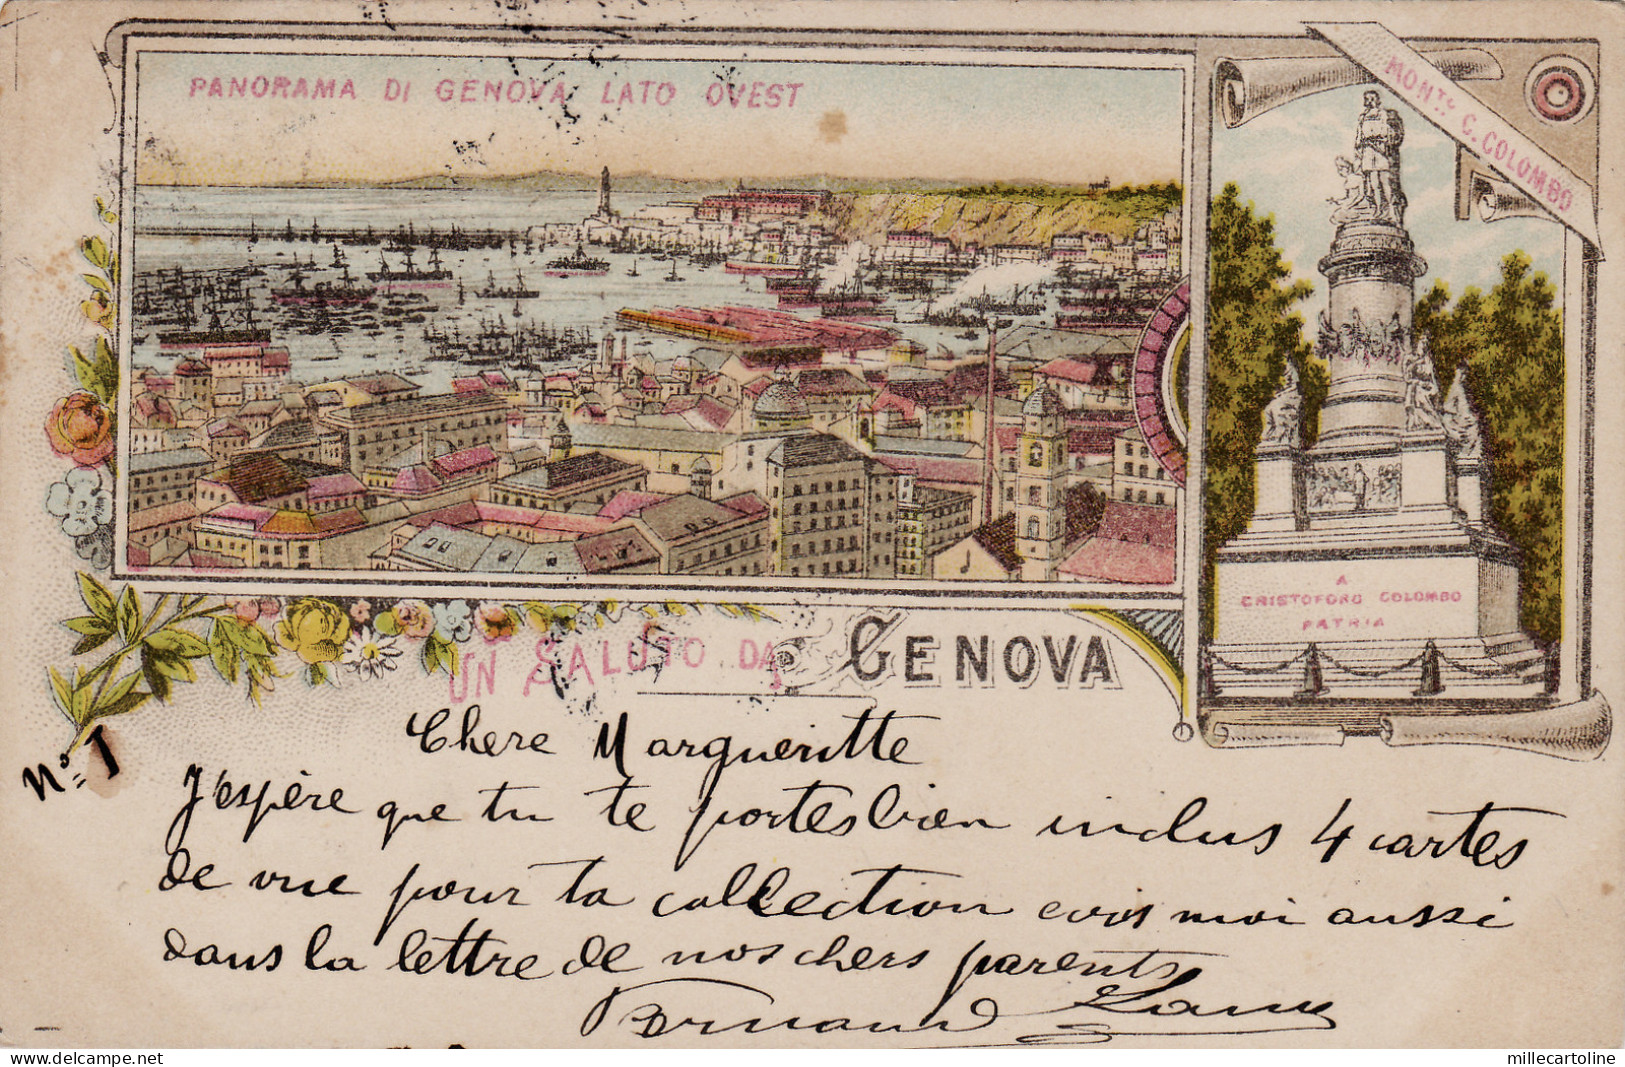 PANORAMA DI GENOVA LATO OVEST
MONTo C. COLOMBO
A
CRISTOFORO COLOMBO
PATRIA
UN SALUTO DA GENOVA
No 1
Chere Margueritte
J'espère que tu te portes bien inclus 4 cartes
de vue pour ta collection ecris moi aussi
dans la lettre de nos chers parents
millecartoline